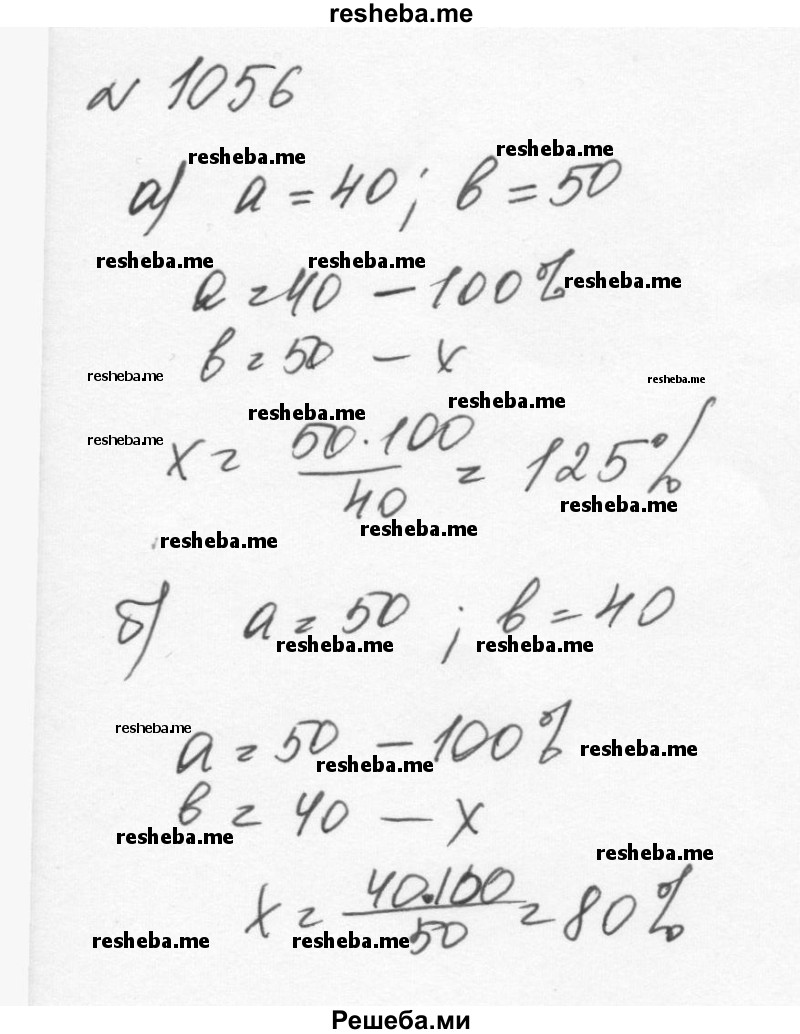 resheba.me
№ 1056
resheba.me resheba.me
а) a = 40; b = 50
resheba.me resheba.me
a = 40 — 100% resheba.me
b = 50 — x
resheba.me resheba.me
resheba.me resheba.me
resheba.me
x = 50·100/40 = 125%
resheba.me
resheba.me resheba.me
б) a = 50 ; b = 40
resheba.me resheba.me
resheba.me
a = 50 — 100% resheba.me
resheba.me
b = 40 — x
resheba.me
resheba.me
x = 40·100/50 = 80%
resheba.me resheba.me
Решеба.ми